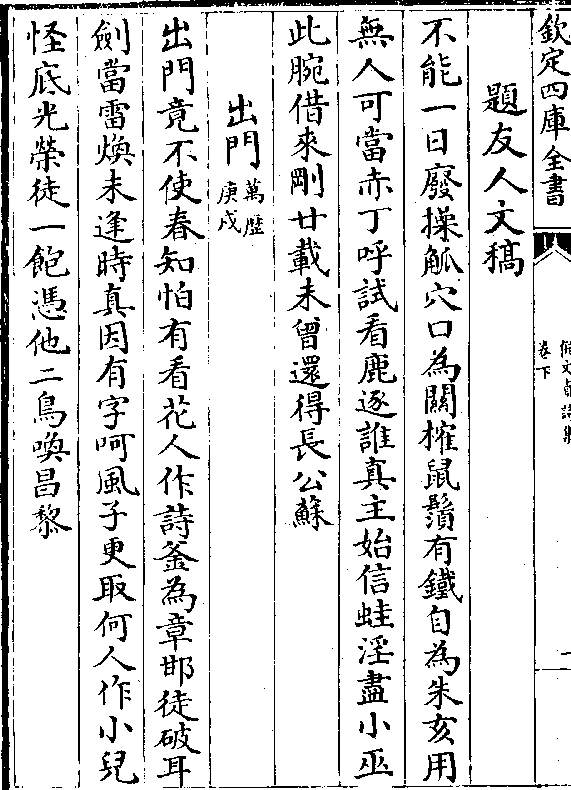 欽定四庫全書
倪文貞詩集
卷下
二
題友人文稿
不能一日廢操觚穴口為關榷鼠鬚有鐵自為朱亥用
無人可當赤丁呼試看鹿逐誰真主始信蛙淫盡小巫
此腕借來剛廿載未曾還得長公蘇
出門萬歴庚戌
出門竟不使春知怕有看花人作詩釜為章邯徒破耳
劍當雷煥未逢時真因有字呵風子更取何人作小兒
怪底光榮徒一飽憑他二鳥喚昌黎